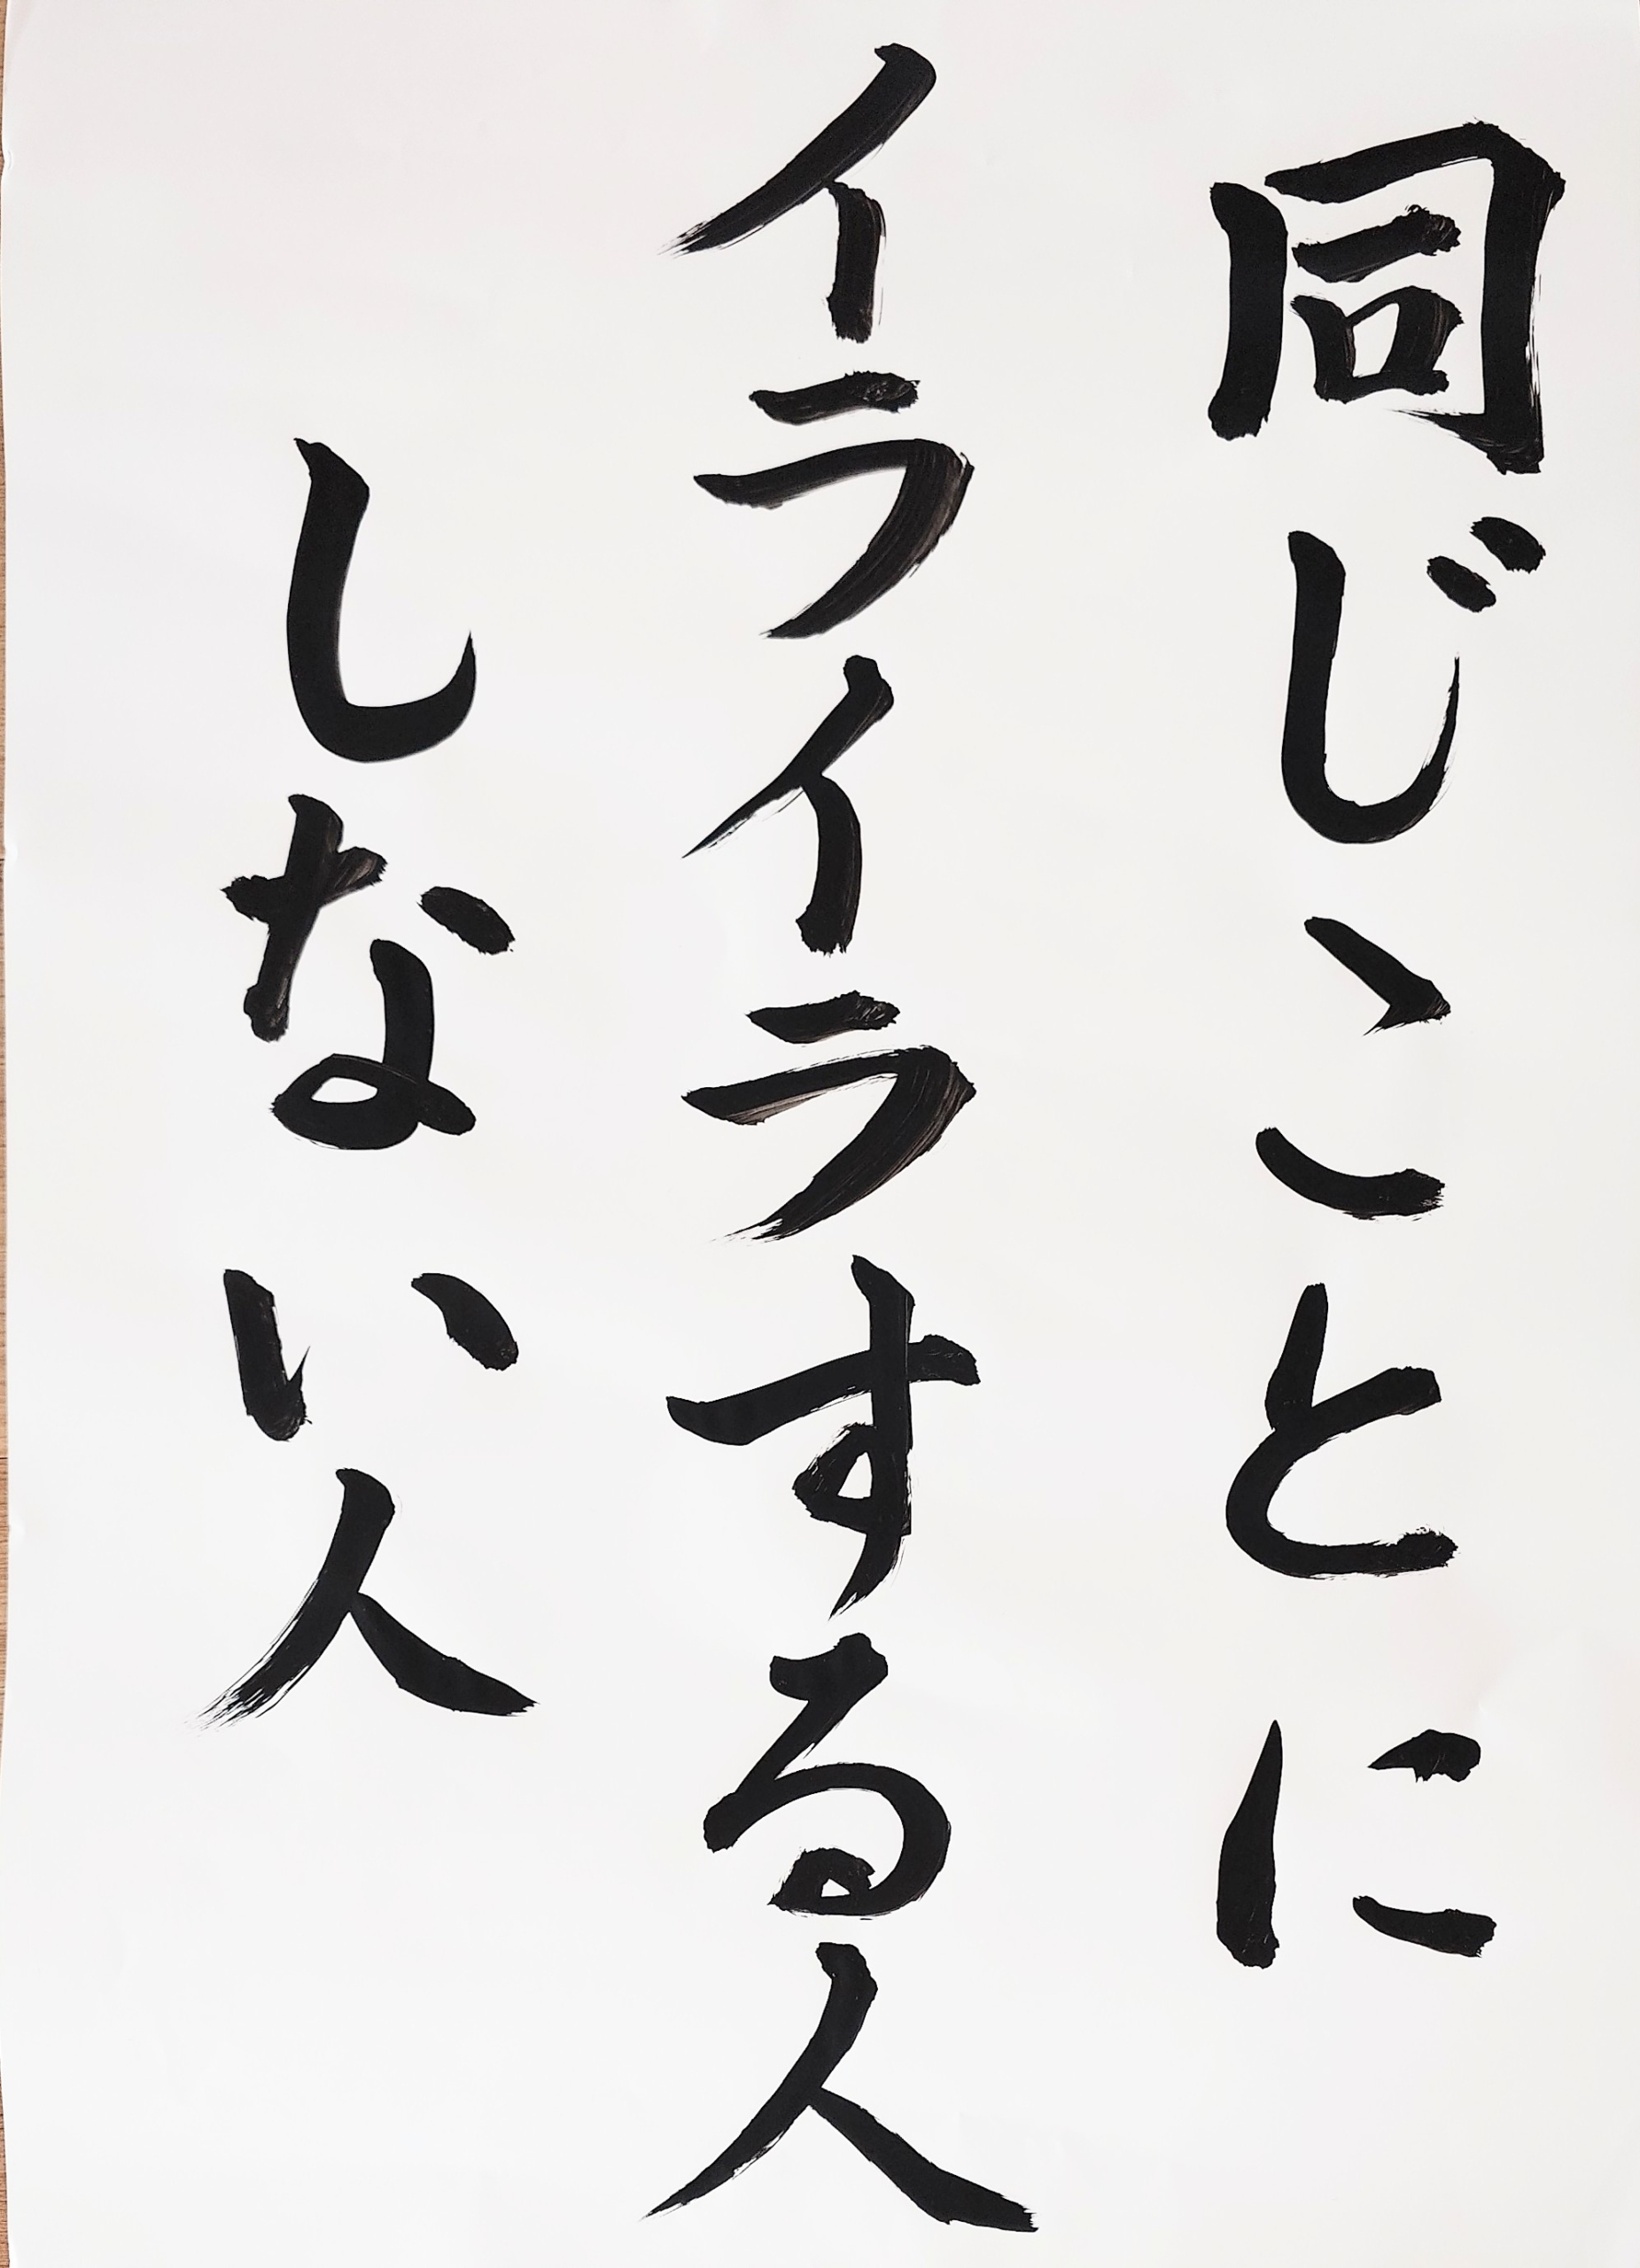 同じことに
イライラする人
しない人